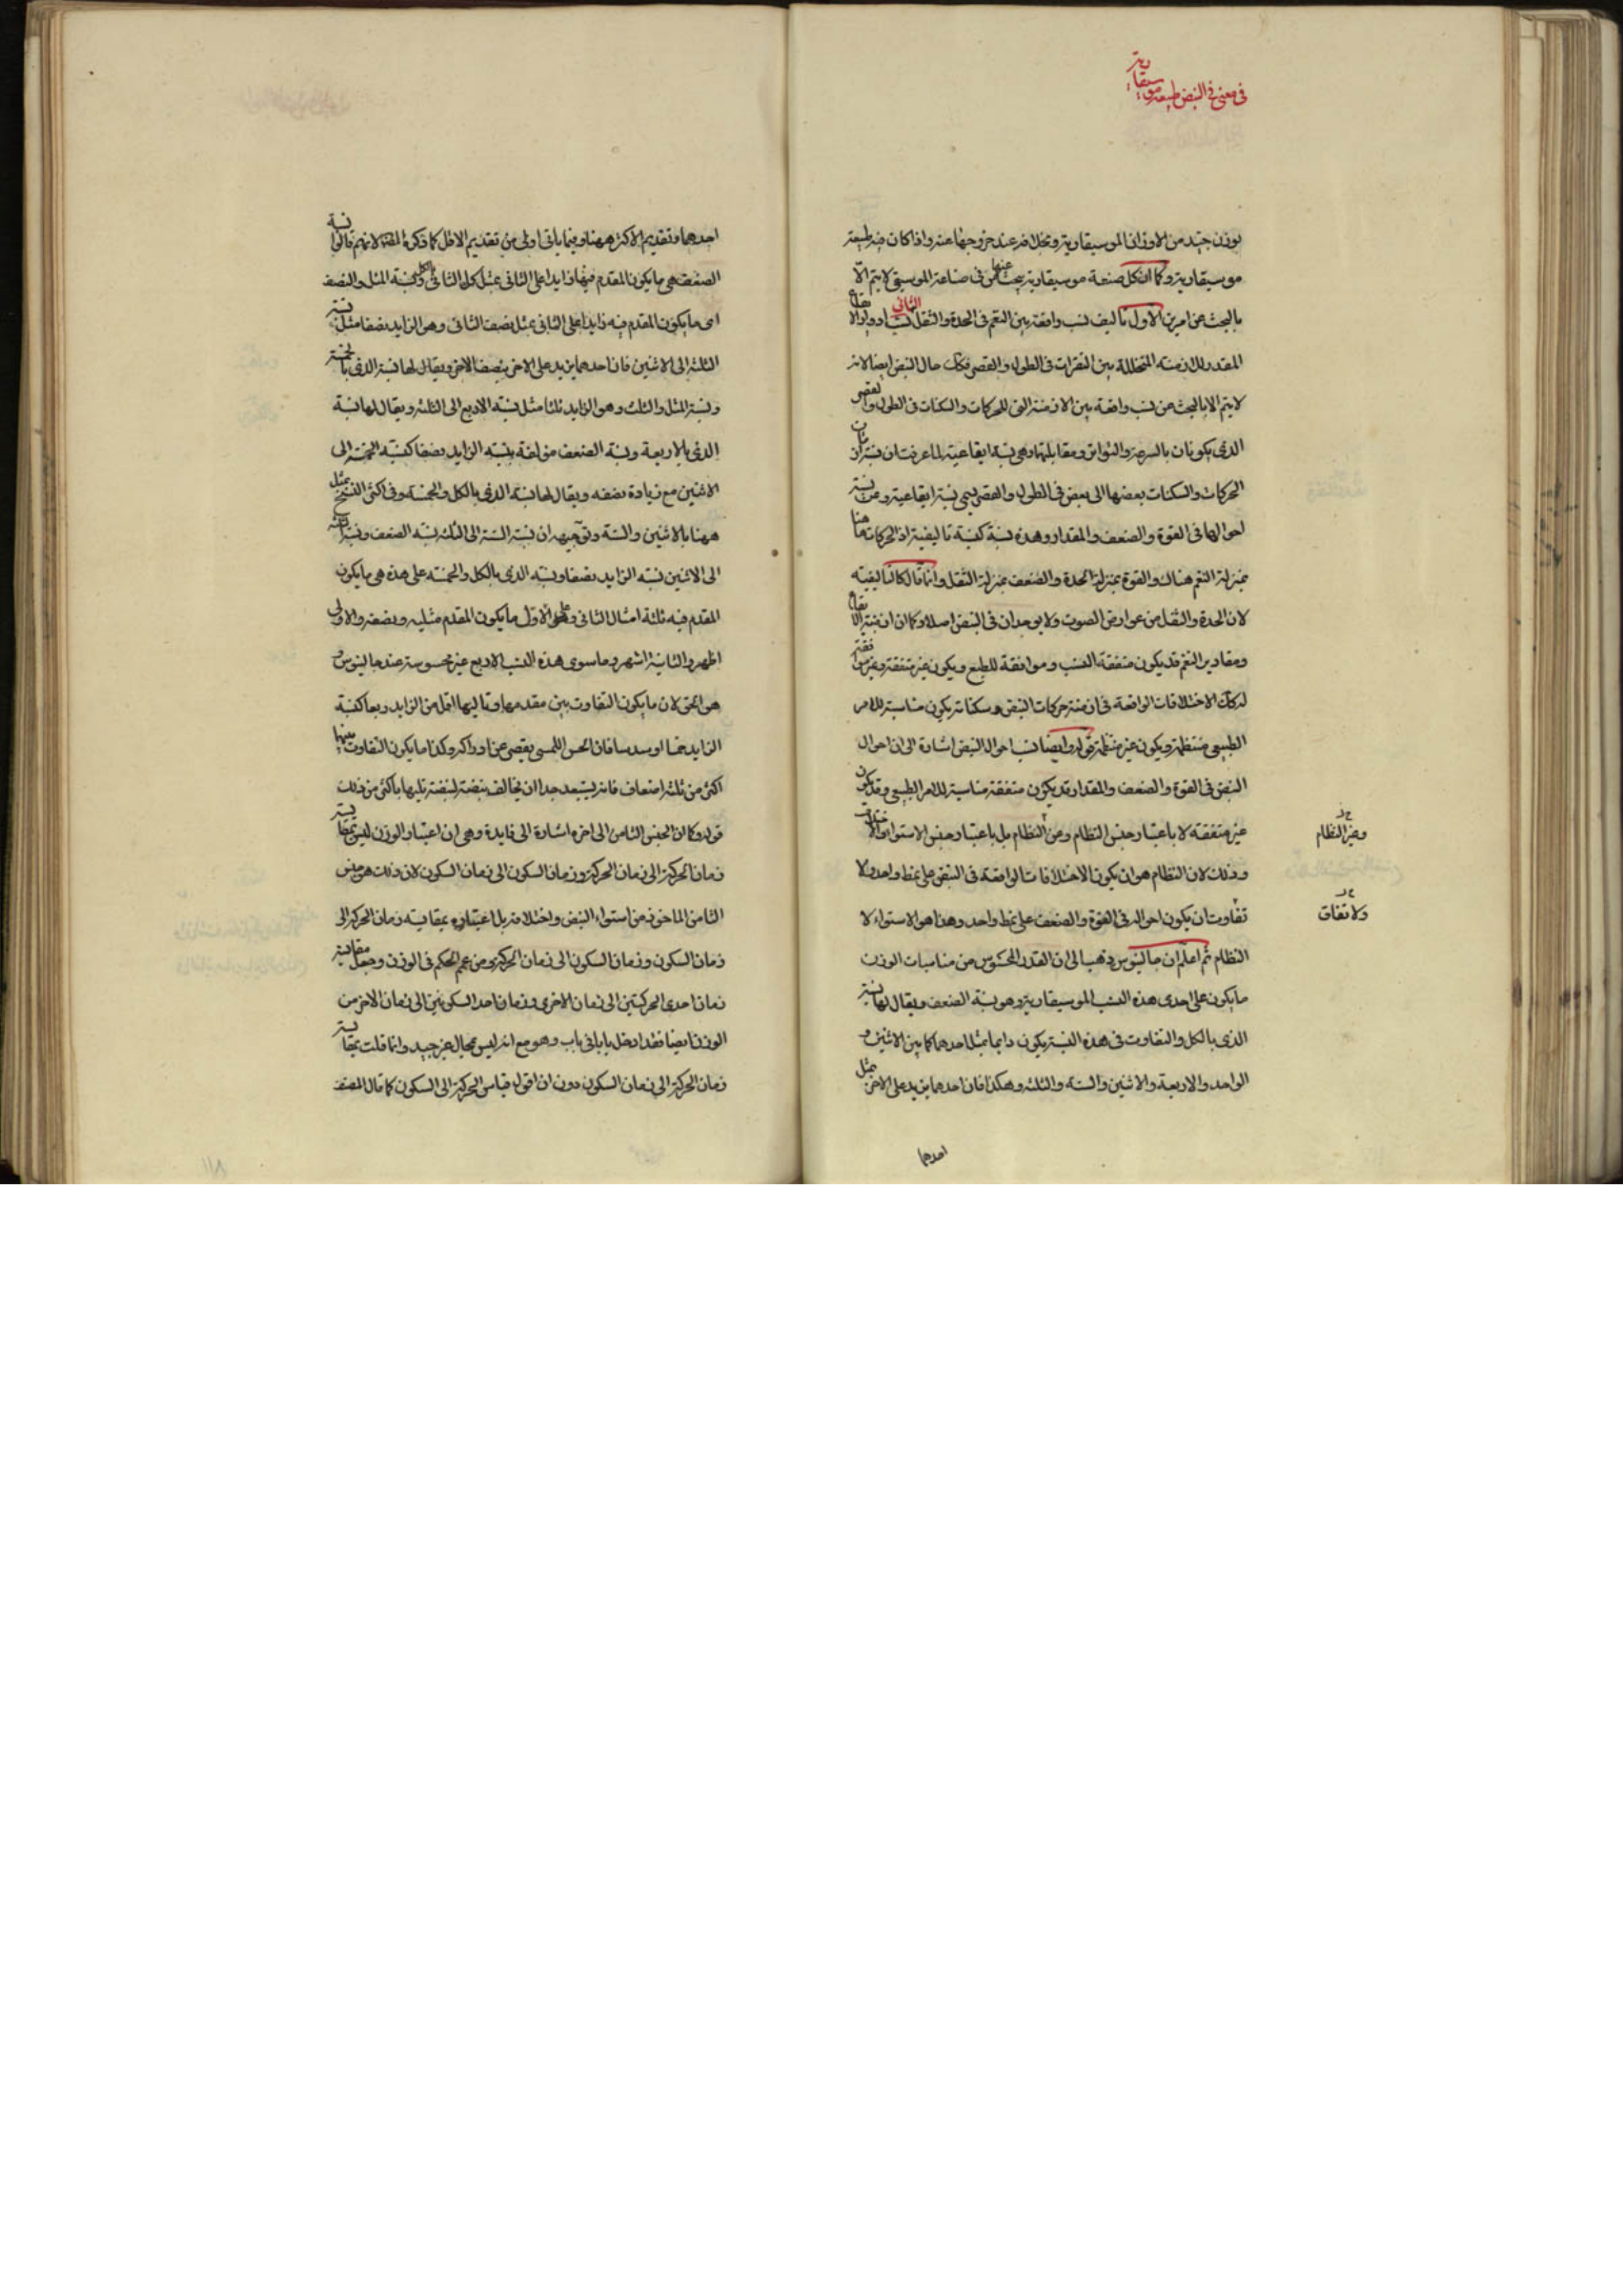 في معنى في النبض طبيعة موسيقاوية
بوزن جيد من الاوزان الموسيقاوية وبخلافه عند خروجها عنه واذا كان فيه طبيعة
موسيقاوية وكما ان كل صنعة موسيقاوية يبحث عنها في صناعة الموسيقى لا يتم الا
بالبحث عن امرين الاول تاليف نسب واقعة بين النغم في الحدة والثقل الثاني نسب ادوار الايقاع
المقدر للازمنة المتخللة بين النقرات في الطول والقصر فكك حال النبض ايضا لانه
لا يتم الا بالبحث عن نسب واقعة بين الازمنة التي للحركات والسكنات في الطول والقصر
الذي يكونان بالسرعة والتواتر ومقابليهما وهي نسبة ايقاعية لما عرفت ان نسبة ازمان
الحركات والسكنات بعضها الى بعض في الطول والقصر يسمى نسبة ايقاعية وعن نسبة
احوالها في القوة والضعف والمقدار وهذه نسبة كنسبة تاليفية اذ الحركات ههنا
بمنزلة النغم هناك والقوة بمنزلة الحدة والضعف بمنزلة الثقل وانما قال كالتاليفية
لان الحدة والثقل من عوارض الصوت ولا يوجدان في النبض اصلا وكما ان ازمنة الايقاع
ومقادير النغم قد يكون متفقة النسب وموافقة للطبع ويكون غير متفقة وغير موافقة
لذلك الاختلافات الواقعة في ازمنة حركات النبض وسكناته يكون مناسبة للامر
الطبيعي منتظمة ويكون غير منتظمة قوله وايضا نسب احوال النبض اشارة الى ان احوال
النبض في القوة والضعف والمقدار قد يكون متفقة مناسبة للامر الطبيعي وقد يكون
غير متفقة لا باعتبار جنس النظام وعن النظام بل باعتبار جنس الاستواء والاختلاف
وذلك لان النظام هو ان يكون الاختلافات الواقعة في النبض على نمط واحد ولا
تفاوت ان يكون احواله في القوة والضعف على نمط واحد وهذا هو الاستواء لا
النظام ثم اعلم ان جالينوس ذهب الى ان القدر المحسوس من مناسبات الوزن
ما يكون على احدى هذه النسب الموسيقاوية وهو نسبة الضعف ويقال لها نسبة
الذي بالكل والتفاوت في هذه النسبة يكون دايما بمثل احدهما كما بين الاثنين و
الواحد والاربعة والاثنين والستة والثلثة وهكذا فان احدهما يزيد على الاخر بمثل
احدهما
وغير النظام
ولا تفاق
احدهما وتقديم الاكثر ههنا وفيما ياتي اولى من تقديم الاقل كما ذكره المصنف لانهم قالوا نسبة
الضعف هي ما يكون المقدم فيها زايدا على الثاني بمثل كل الثاني ونسبة المثل والنصف
اي ما يكون المقدم فيه زايدا على الثاني بمثل نصف الثاني وهو الزايد نصفا مثل نسبة
الثلثة الى الاثنين فان احدهما يزيد على الاخر بنصف الاخر ويقال لها نسبة الذي بالخمسة
ونسبة المثل والثلث وهو الزايد ثلثا مثل نسبة الاربع الى الثلثة ويقال لها نسبة
الذي بالاربعة ونسبة الضعف مؤلفة بنسبة الزايد نصفا كنسبة الخمسة الى
الاثنين مع زيادة نصفه ويقال لها نسبة الذي بالكل والخمسة وفي اكثر النسخ يمثل
ههنا بالاثنين والستة وتوجيهه ان نسبة الستة الى الثلثة نسبة الضعف ونسبة الثلثة
الى الاثنين نسبة الزايد نصفا ونسبة الذي بالكل والخمسة على هذه هي ما يكون
المقدم فيه ثلثة امثال الثاني وعلى الاول ما يكون المقدم مثليه ونصفه والاولى
اظهر والثانية اشهر وما سوى هذه النسب الاربع غير محسوسة عند جالينوس و
هو الحق لان ما يكون التفاوت بين مقدمها وتاليها اقل من الزايد ربعا كنسبة
الزايد خمسا او سدسا فان الحس اللمسي يقصر عن ادراكه وكذا ما يكون التفاوت بينهما
اكثر من ثلثة اضعاف فانه يستبعد جدا ان يخالف نبضة لنبضة تليها باكثر من ذلك
قوله وكان الجنس الثامن الى اخره اشارة الى فايدة وهي ان اعتبار الوزن ليس بمقايسة
زمان الحركة الى زمان الحركة وزمان السكون الى زمان السكون لان ذلك هو جنس
الثامن الماخوذ من استواء النبض واختلافه بل اعتباره بمقايسة زمان الحركة الى
زمان السكون وزمان السكون الى زمان الحركة ومن عمم الحكم في الوزن وجعل مقايسة
زمان احدى الحركتين الى زمان الاخرى وزمان احد السكونين الى زمان الاخر من
الوزن ايضا فقد ادخل بابا في باب وهو مع انه ليس بمحال غير جيد وانما قلت بمقايسة
زمان الحركة الى زمان السكون دون ان اقول قياس الحركة الى السكون كما قال المصنف
١١٨